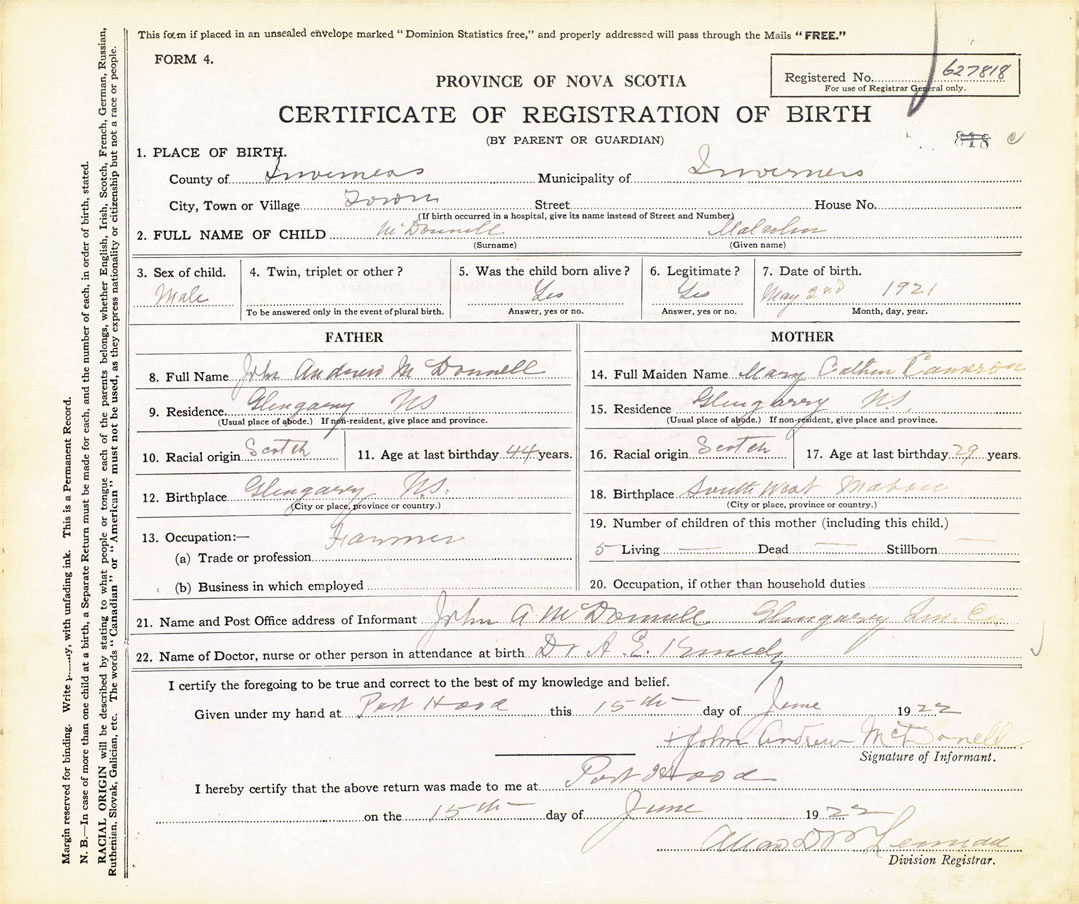 This form if placed in an unsealed envelope marked "Dominion Statistics free," and properly addressed will pass through the Mails "FREE."
FORM 4.
Registered No. 627818
For use of Registrar General only.
PROVINCE OF NOVA SCOTIA
CERTIFICATE OF REGISTRATION OF BIRTH
(BY PARENT OR GUARDIAN)
818 c
1. PLACE OF BIRTH.
County of Inverness Municipality of Inverness
City, Town or Village Town Street House No.
(If birth occurred in a hospital, give its name instead of Street and Number)
2. FULL NAME OF CHILD McDonnell Malcolm
(Surname) (Given name)
3. Sex of child. 4. Twin, triplet or other? 5. Was the child born alive? 6. Legitimate? 7. Date of birth.
Male Yes Yes May 2nd 1921
To be answered only in the event of plural birth. Answer, yes or no. Answer, yes or no. Month, day, year.
FATHER
8. Full Name John Andrew McDonnell
9. Residence. Glengarry NS
(Usual place of abode.) If non-resident, give place and province.
10. Racial origin Scotch 11. Age at last birthday 44 years.
12. Birthplace Glengarry N.S.
(City or place, province or country.)
13. Occupation:— Farmer
(a) Trade or profession
(b) Business in which employed
MOTHER
14. Full Maiden Name Mary Cathen Cameron
15. Residence Glengarry NS.
(Usual place of abode.) If non-resident, give place and province.
16. Racial origin Scotch 17. Age at last birthday 29 years.
18. Birthplace South West Mabou
(City or place, province or country.)
19. Number of children of this mother (including this child.)
5 Living — Dead — Stillborn —
20. Occupation, if other than household duties
21. Name and Post Office address of Informant John A McDonnell Glengarry Inv. Co.
22. Name of Doctor, nurse or other person in attendance at birth Dr A. E. Kennedy
I certify the foregoing to be true and correct to the best of my knowledge and belief.
Given under my hand at Port Hood this 15th day of June 1922
John Andrew McDonell
Signature of Informant.
I hereby certify that the above return was made to me at Port Hood
on the 15th day of June 1922
Allan D Mc
Division Registrar.
Margin reserved for binding. Write with unfading ink. This is a Permanent Record.
N. B.—In case of more than one child at a birth, a Separate Return must be made for each, and the number of each, in order of birth, stated.
RACIAL ORIGIN will be described by stating to what people or tongue each of the parents belongs, whether English, Irish, Scotch, French, German, Russian,
Ruthenian, Slovak, Galician, etc. The words "Canadian" or "American" must not be used, as they express nationality or citizenship but not a race or people.